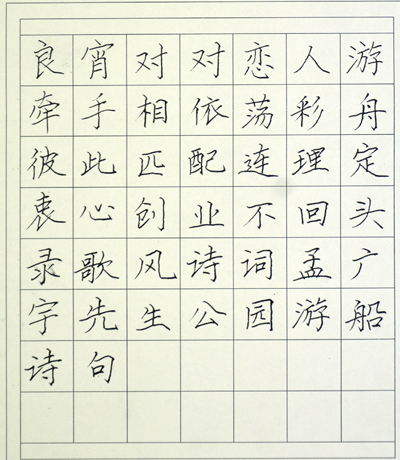 良宵对对恋人游
牵手相依荡彩舟
彼此匹配连理定
衷心创业不回头
录歌风诗词孟广
宇先生公园游船
诗句